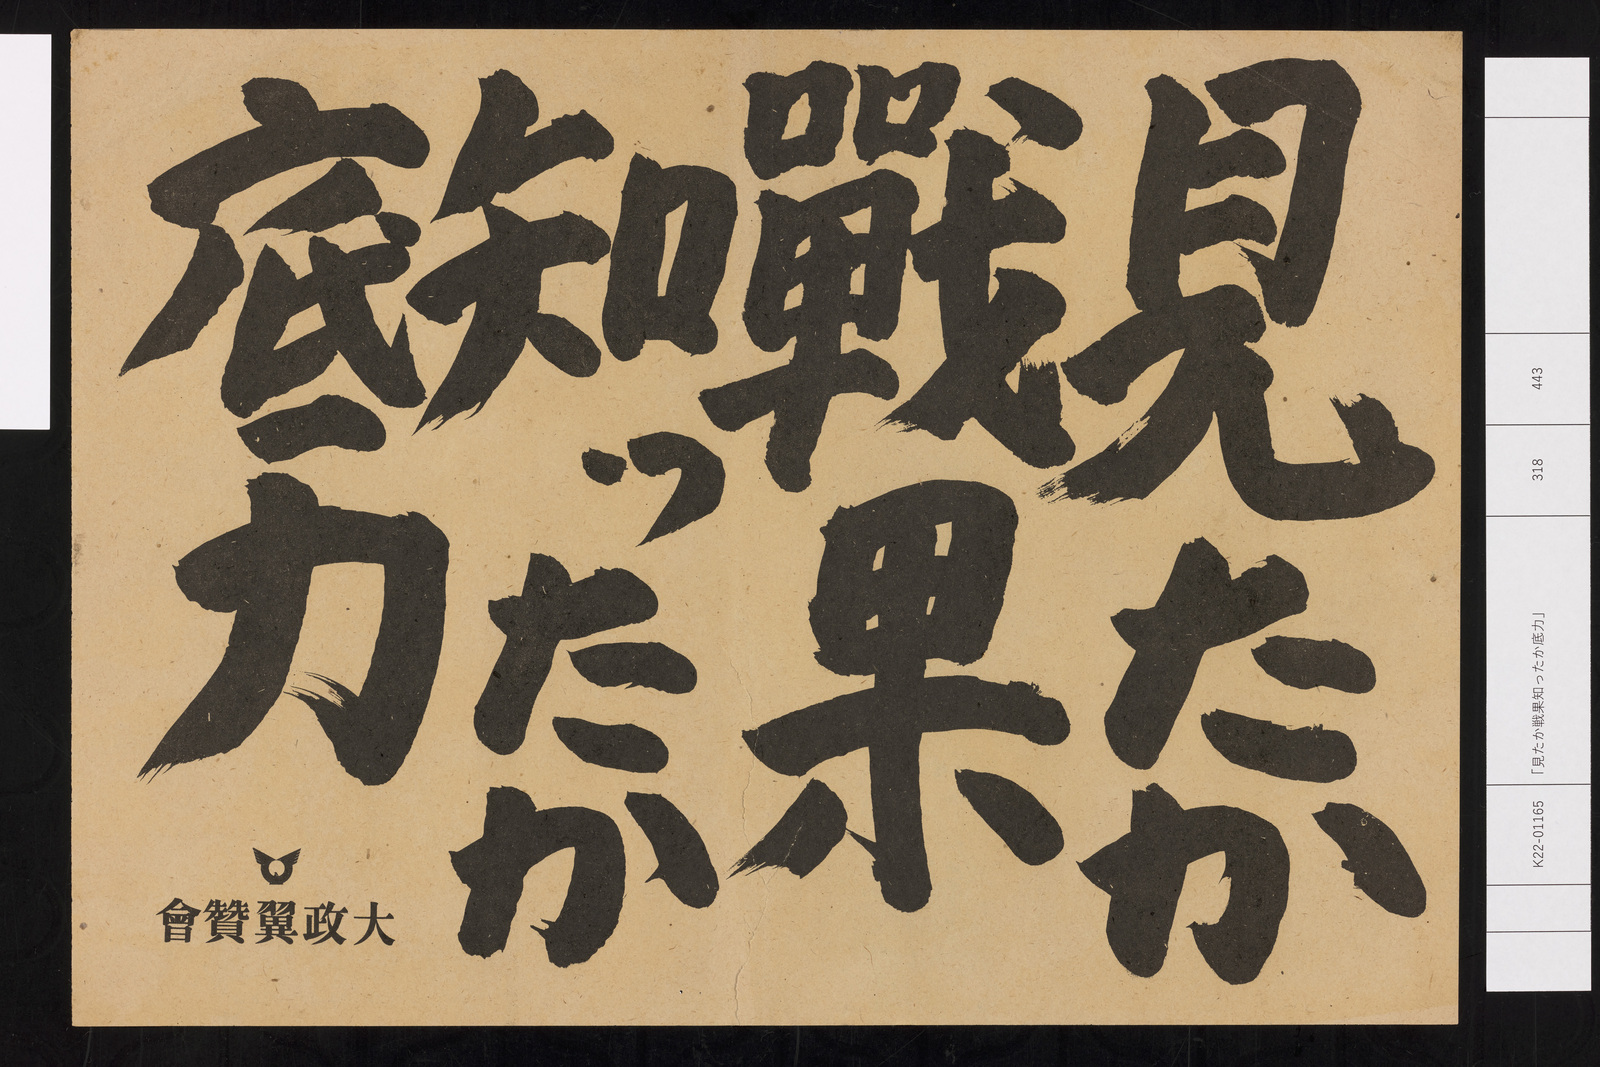 見たか
戰果
知ったか
底力
大政翼贊會
443
318
「見たか戦果知ったか底力」
K22-01165